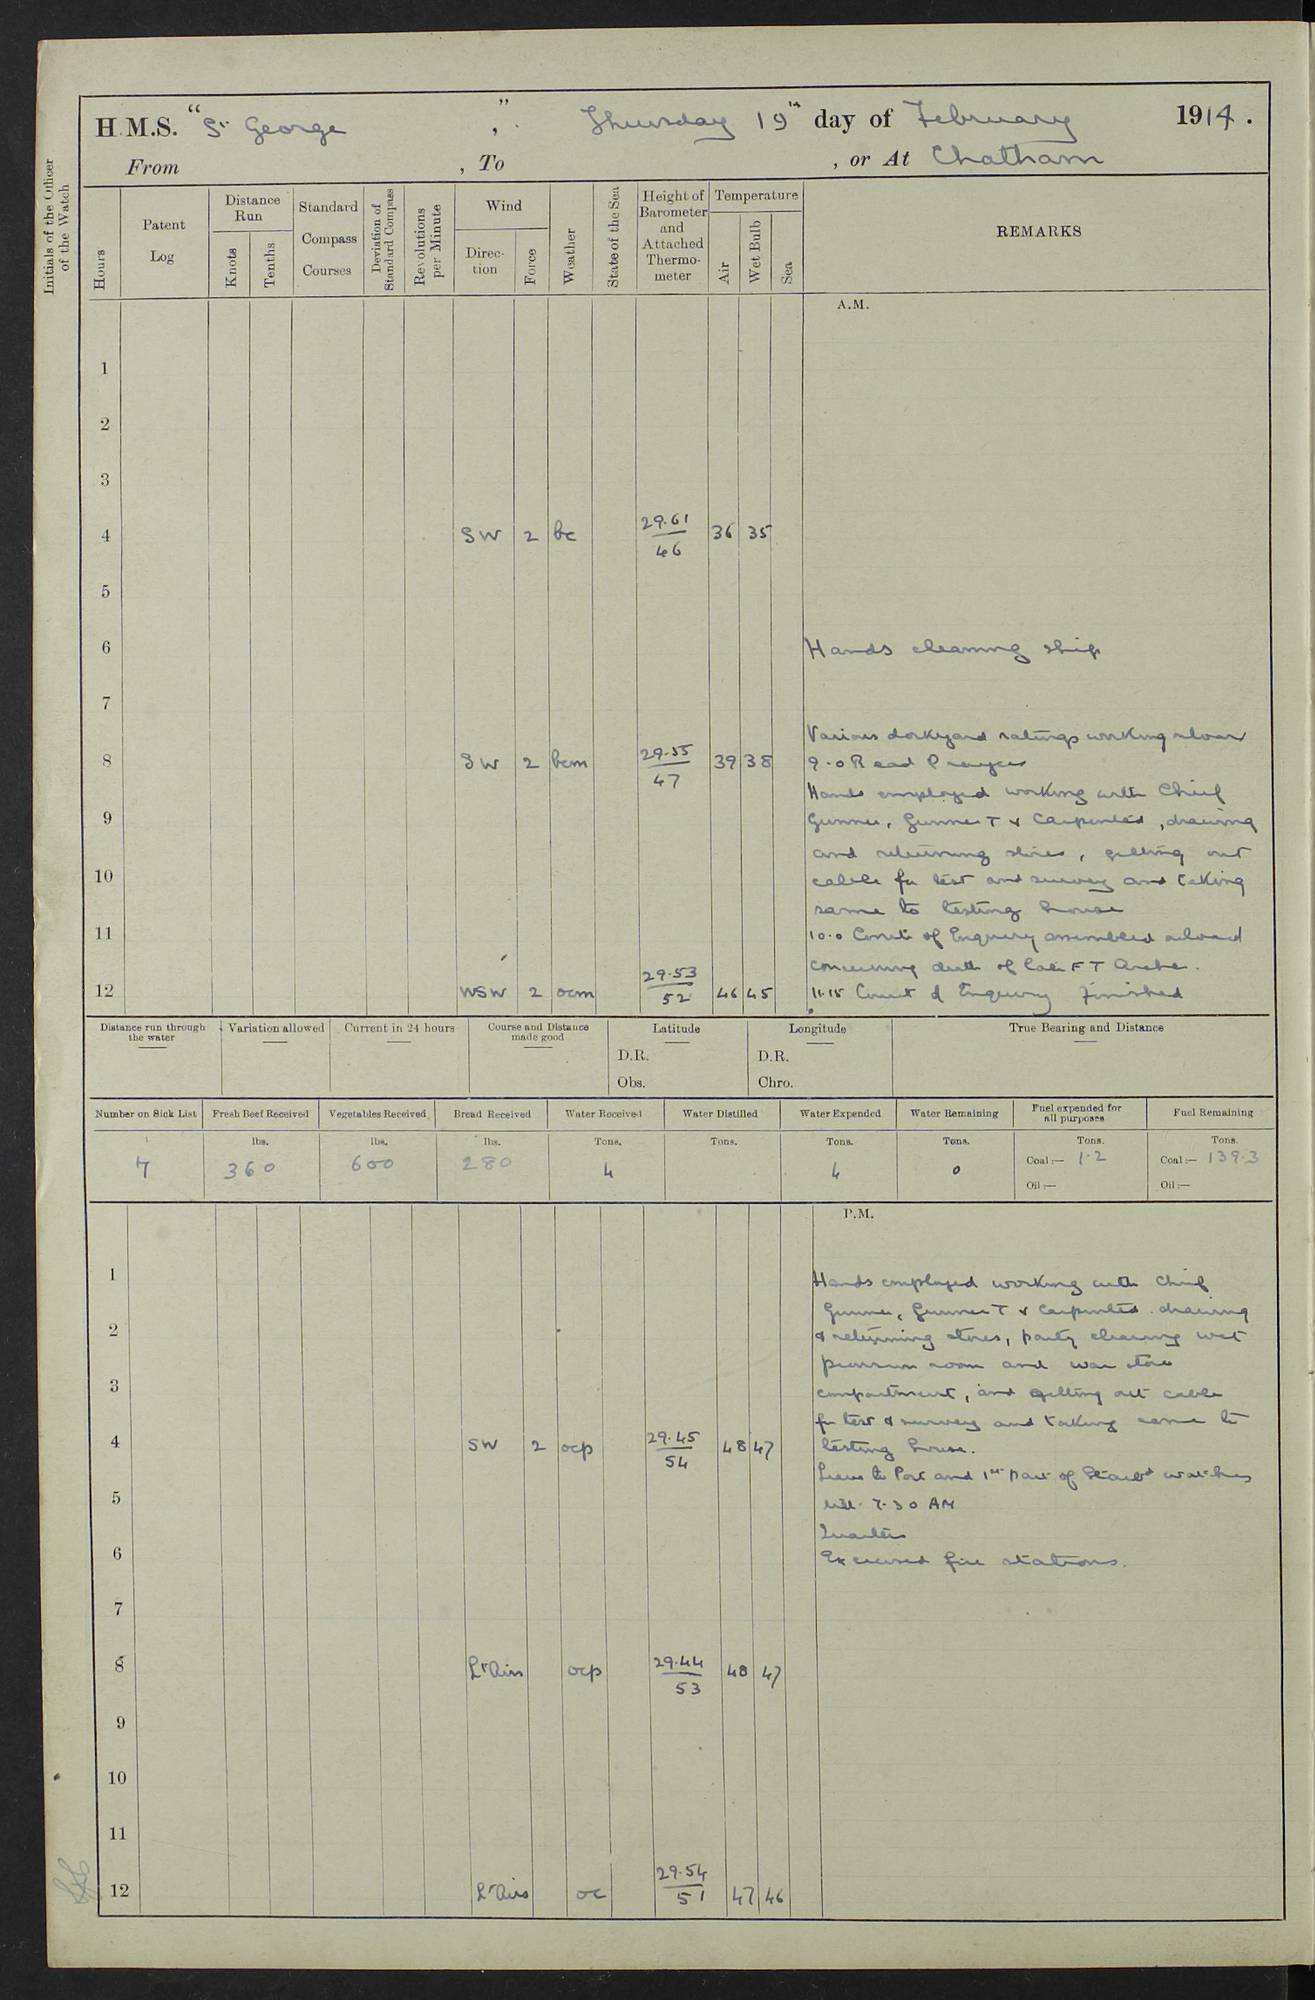 H.M.S. "St George", Thursday 19th day of February 1914.
From , To , or At Chatham
Initials of the Officer of the Watch
Hours
Patent Log
Distance Run
Knots
Tenths
Standard Compass Courses
Deviation of Standard Compass
Revolutions per Minute
Wind
Direction
Force
Weather
State of the Sea
Height of Barometer and Attached Thermometer
Temperature
Air
Wet Bulb
Sea
REMARKS
A.M.
1
2
3
4 SW 2 bc 29.61 46 36 35
5
6 Hands cleaning ship
7
Various dockyard ratings working aboard
8 SW 2 bcm 29.55 47 39 38 9.0 Read Prayers
Hands employed working with Chief
9 Gunner, Gunner T & Carpenter, drawing
and returning stores, getting out
10 cable for test and survey and taking
same to testing house
11 10.0 Court of Enquiry assembled aboard
concerning death of late F T
12 WSW 2 ocm 29.53 52 46 45 11.15 Court of Enquiry finished
Distance run through the water
Variation allowed
Current in 24 hours
Course and Distance made good
Latitude
D.R.
Obs.
Longitude
D.R.
Chro.
True Bearing and Distance
Number on Sick List Fresh Beef Received Vegetables Received Bread Received Water Received Water Distilled Water Expended Water Remaining Fuel expended for all purposes Fuel Remaining
lbs. lbs. lbs. Tons. Tons. Tons. Tons. Tons. Tons.
7 360 600 280 4 4 0 Coal:— 1.2 Coal:— 139.3
Oil:— Oil:—
P.M.
1 Hands employed working with Chief
Gunner, Gunner T & Carpenter drawing
2 & returning stores, party cleaning wet
provision room and war store
3 compartment, and getting out cable
for test & survey and taking same to
4 SW 2 ocp 29.45 54 48 47 testing house.
Leave to Port and 1st part of Starbd watches
5 till 7.30 AM
Quarters
6 Exercised fire stations.
7
8 Lt Airs ocp 29.44 53 48 47
9
10
11
12 Lt Airs oc 29.54 51 47 46